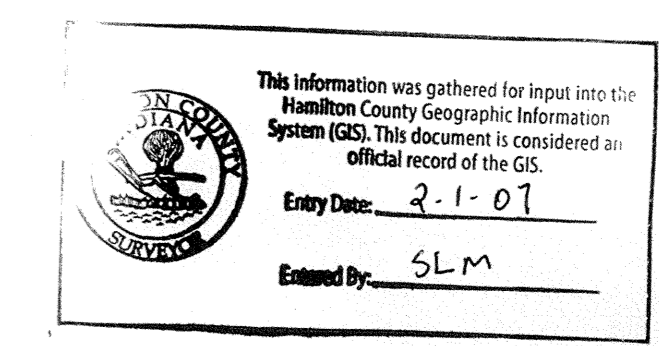 ON COUNTY
DIANA
NDIANA
SURVEYOR
This information was gathered for input into the
Hamilton County Geographic Information
System (GIS). This document is considered an
official record of the GIS.
Entry Date: 2-1-07
Entered By: SLM